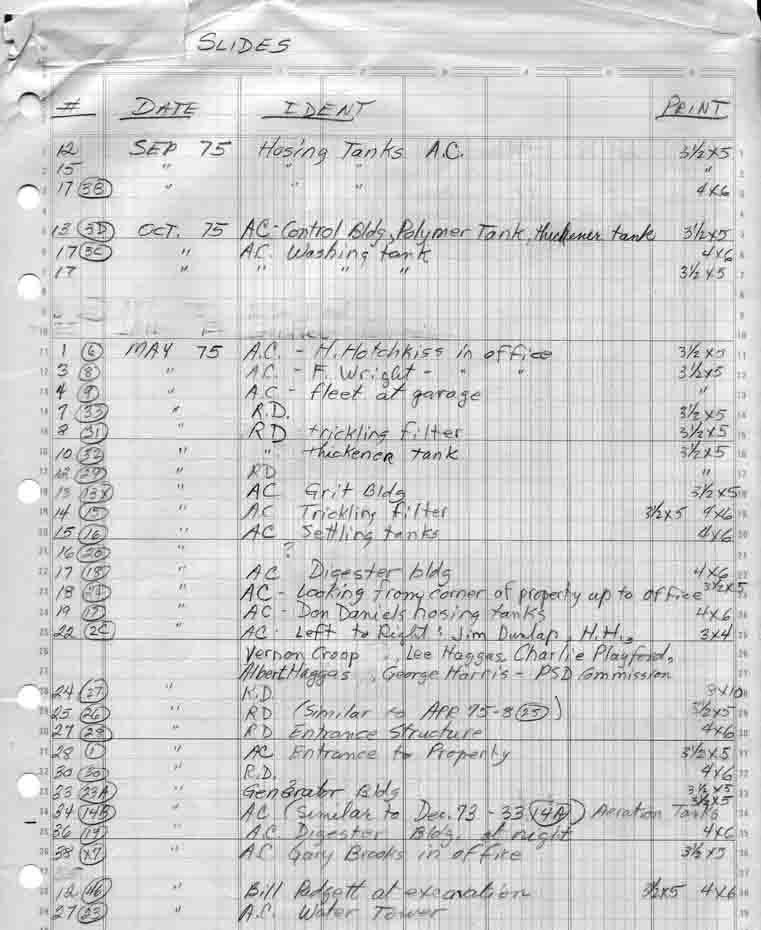 SLIDES
# DATE IDENT PRINT
12 SEP 75 Hosing Tanks A.C. 3½x5
15 " " " "
17 (3B) " " " 4x6
13 (3D) OCT. 75 AC-Control Bldg, Polymer Tank, thickener tank 3½x5
17 (3C) " A.C. Washing tank 4x6
17 " " " " 3½x5
1 (6) MAY 75 A.C. - H. Hotchkiss in office 3½x5
3 (8) " A.C. - F. Wright - " " 3½x5
4 (9) " A.C - fleet at garage "
7 (33) " R.D. 3½x5
8 (31) " RD trickling filter 3½x5
10 (32) " " thickener tank 3½x5
12 (29) " RD "
13 (13X) " AC Grit Bldg 3½x5
14 (15) " AC Trickling filter 3½x5 4x6
15 (16) " AC Settling tanks 4x6
16 (20) " ?
17 (18) " AC Digester bldg 4x6
18 " AC - Looking from corner of property up to office 3½x5
19 (17) " AC - Don Daniels hosing tanks 4x6
22 (2C) " AC - Left to Right: Jim Dunlap, H.H.,  3x4
Vernon Croop, Lee Haggas, Charlie Playford,
Albert Haggas, George Harris - PSD Commission
24 (27) " R.D. 8x10
25 (26) " RD (Similar to APR 75-8 (25)) 3½x5
27 (28) " RD Entrance Structure 4x6
28 (1) " AC Entrance to Property 3½x5
30 (30) " R.D. 4x6
33 (23A) " Generator Bldg 3½x5
34 (14B) " AC (Similar to Dec. 73 - 33 (14A)) Aeration Tanks 3½x5
36 (19) " A.C. Digester Bldg. at night 4x6
38 (X7) " A.C Gary Brooks in office 3½x5
12 (46) " Bill Padgett at excavation 3½x5 4x6
27 (23) " A.C. Water Tower